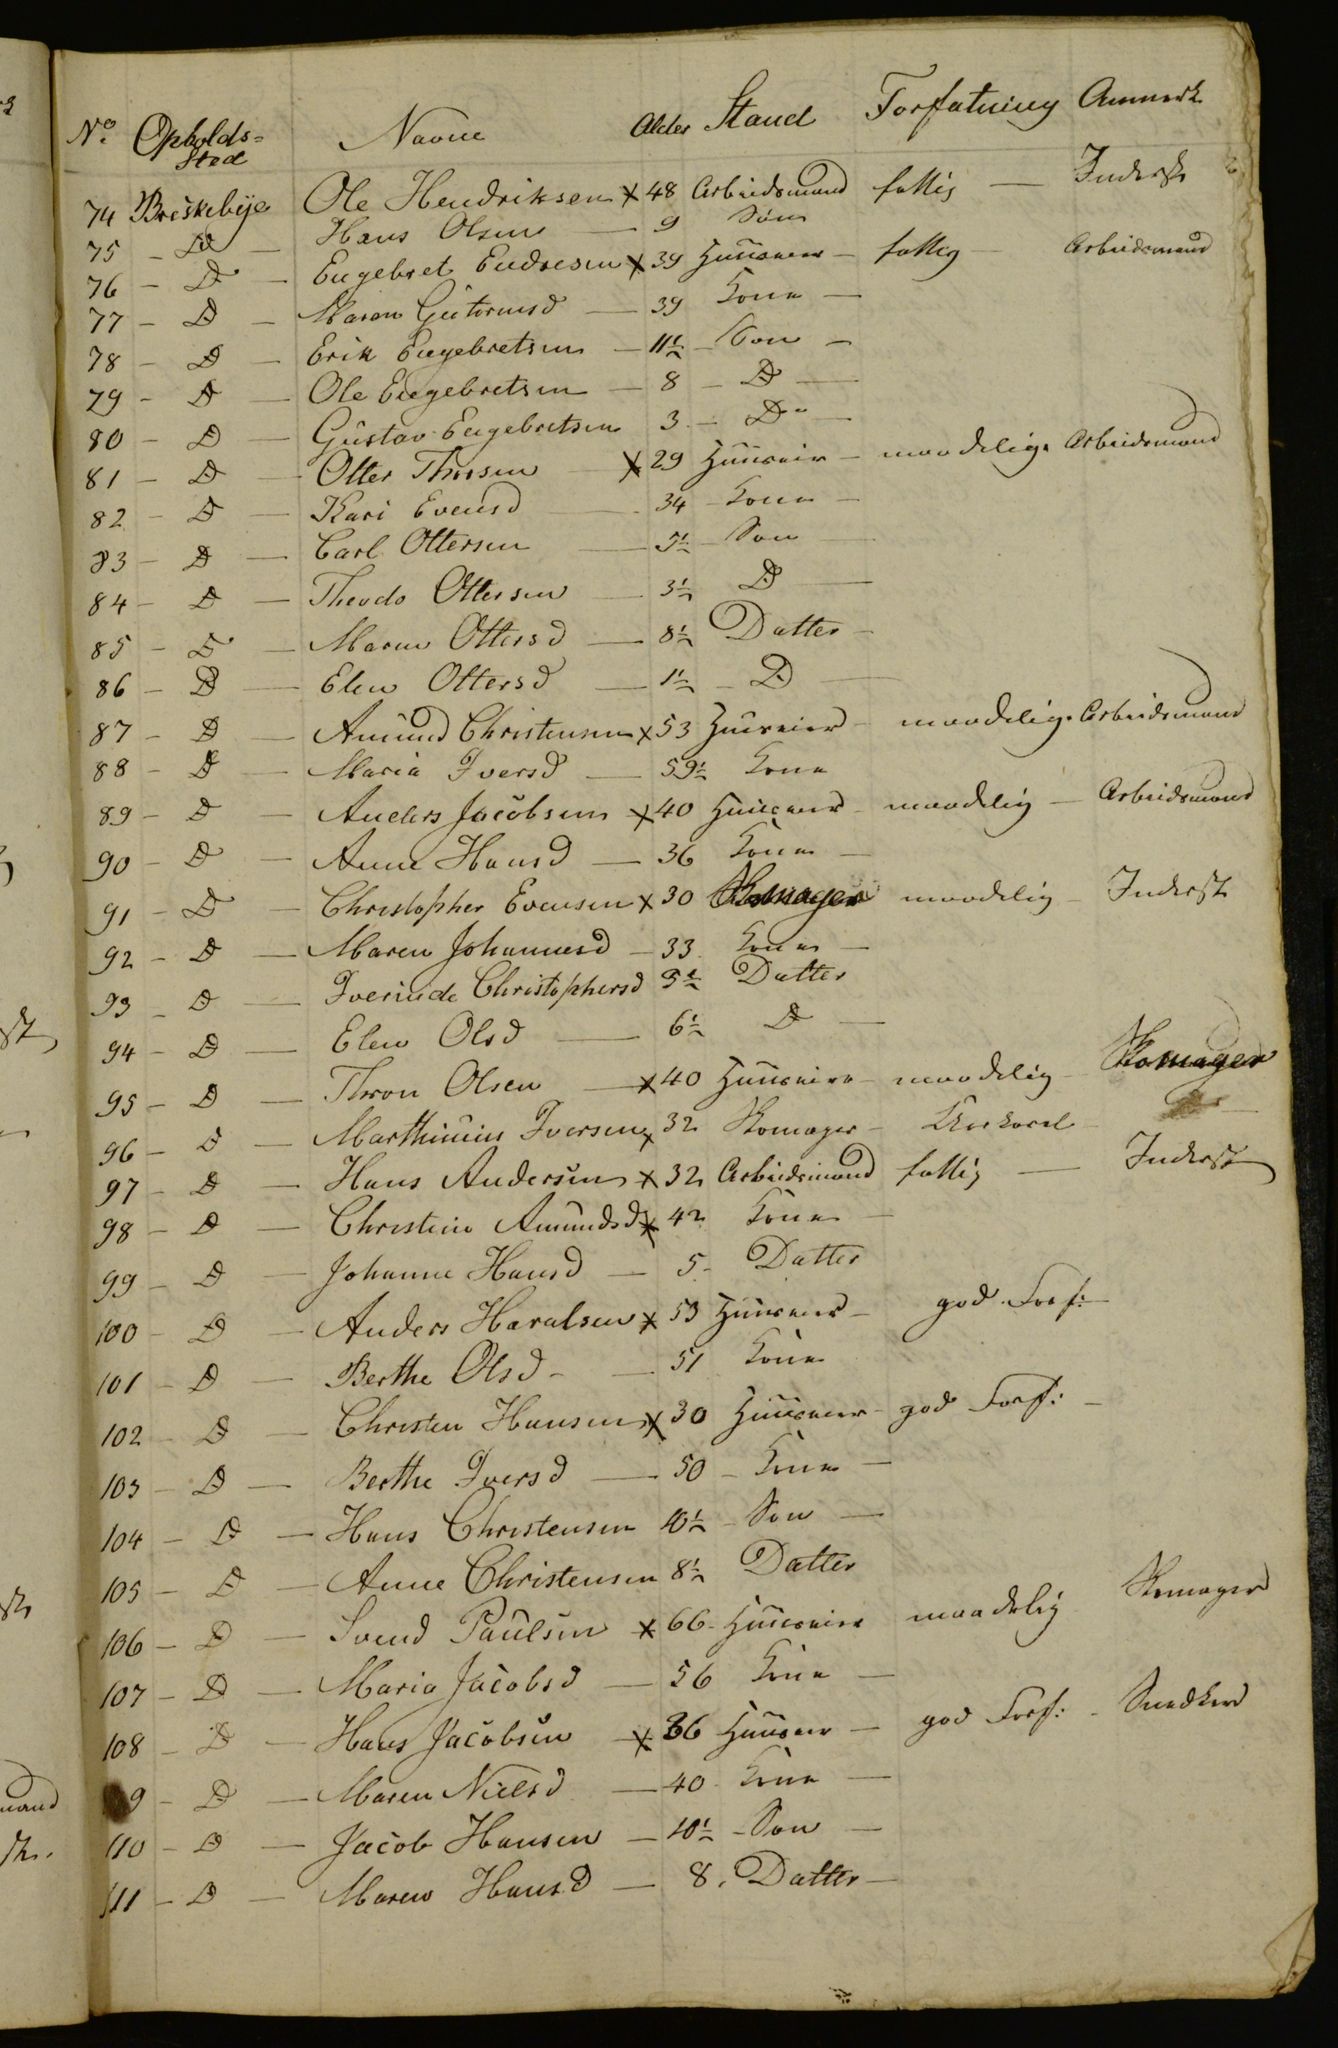 No. Opholds= Stæd Navne Alder Stand Forfatning Anmerk
74 Briskebÿe Ole Hendriksen x 48 Arbeidsmand fattig — Inderst
75 – Do — Hans Olsen — 9 Søn
76 – Do — Engebret Endresen x 39 Huuseier – fattig – Arbeidsmand
77 – Do — Maren Gutormsd — 39 Kone —
78 – Do — Erik Engebretsen — 11½ – Søn –
79 – Do — Ole Engebretsen – 8 – Do —
80 – Do — Gustav Engebretsen 3 – Do —
81 – Do — Otter Thorsen x 29 Huuseier – maadelig. Arbeidsmand
82 – Do — Kari Evensd — 34 – Kone –
83 – Do — Carl Ottersen — 5½ – Søn —
84 – Do — Theodo Ottersen — 3½ Do —
85 – Do — Maren Ottersd — 8½ Datter –
86 – Do — Elen Ottersd — 1½ – Do —
87 – Do — Amund Christensen x 53 Huuseier – maadelig. Arbeidsmand
88 – Do — Maria Iversd — 59½ Kone
89 – Do — Anders Jacobsen x 40 Huuseier – maadelig – Arbeidsmand
90 – Do — Anne Hansd — 36 Kone —
91 – Do — Christopher Evensen x 30 Skomager maadelig – Inderst
92 – Do — Maren Johannesd – 33 Kone —
93 – Do — Christophersd 3½ Datter
94 – Do — Elen Olsd — 6½ Do —
95 – Do — Thron Olsen — x 40 Huuseier – maadelig – Skomager
96 – Do — Marthinius Iversen x 32 Skomager –
97 – Do — Hans Andersen x 32 Arbeidsmand fattig — Inderst
98 – Do — Christine Amundsd x 42 Kone —
99 – Do — Johanne Hansd — 5 – Datter
100 – Do — Anders Haralsen x 53 Huuseier – god Forf: —
101 – Do — Berthe Olsd – — 51 Kone
102 – Do — Christen Hansen x 30 Huuseier – god Forf: –
103 – Do — Berthe Iversd — 50 – Kone —
104 – Do — Hans Christensen 10½ – Søn —
105 – Do — Anne Christensen 8½ Datter
106 – Do — Svend Paulsen x 66 – Huuseier maadelig Skomager
107 – Do — Maria Jacobsd — 56 Kone —
108 – Do — Hans Jacobsen – x 36 Huuseier — god Forf: – Snedker
9 – Do — Maren Nielsd — 40 – Kone —
110 – Do — Jacob Hansen — 10½ – Søn —
111 – Do — Maren Hansd — 8. Datter –